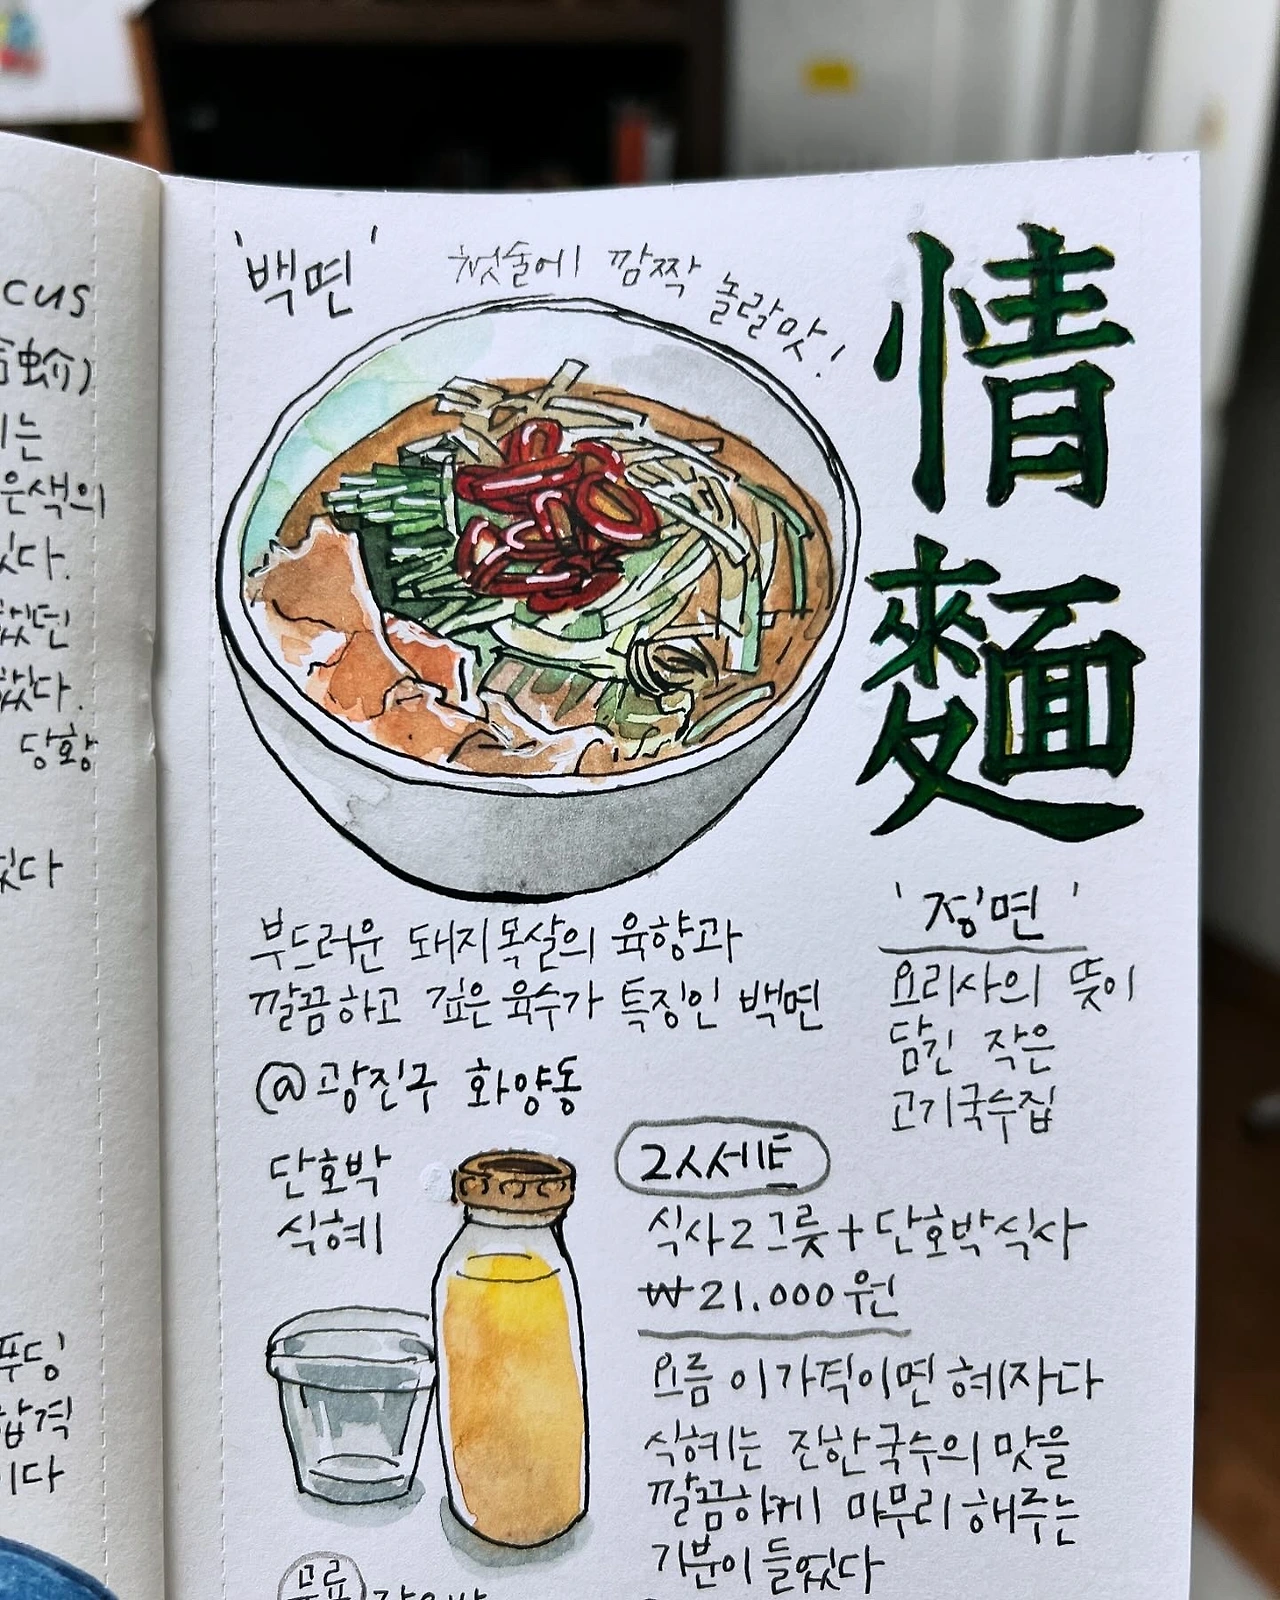 cus
'백면'
첫술에 깜짝 놀랄맛!
情麵
부드러운 돼지목살의 육향과
깔끔하고 깊은 육수가 특징인 백면
@광진구 화양동
'정면'
요리사의 뜻이
담긴 작은
고기국수집
단호박
식혜
2人세트
식사2그릇+단호박식사
₩21.000원
요즘 이가격이면 혜자다
식혜는 진한국수의 맛을
깔끔하게 마무리해주는
기분이 들었다
무료
는
은색의
당황
푸딩
합격
이다